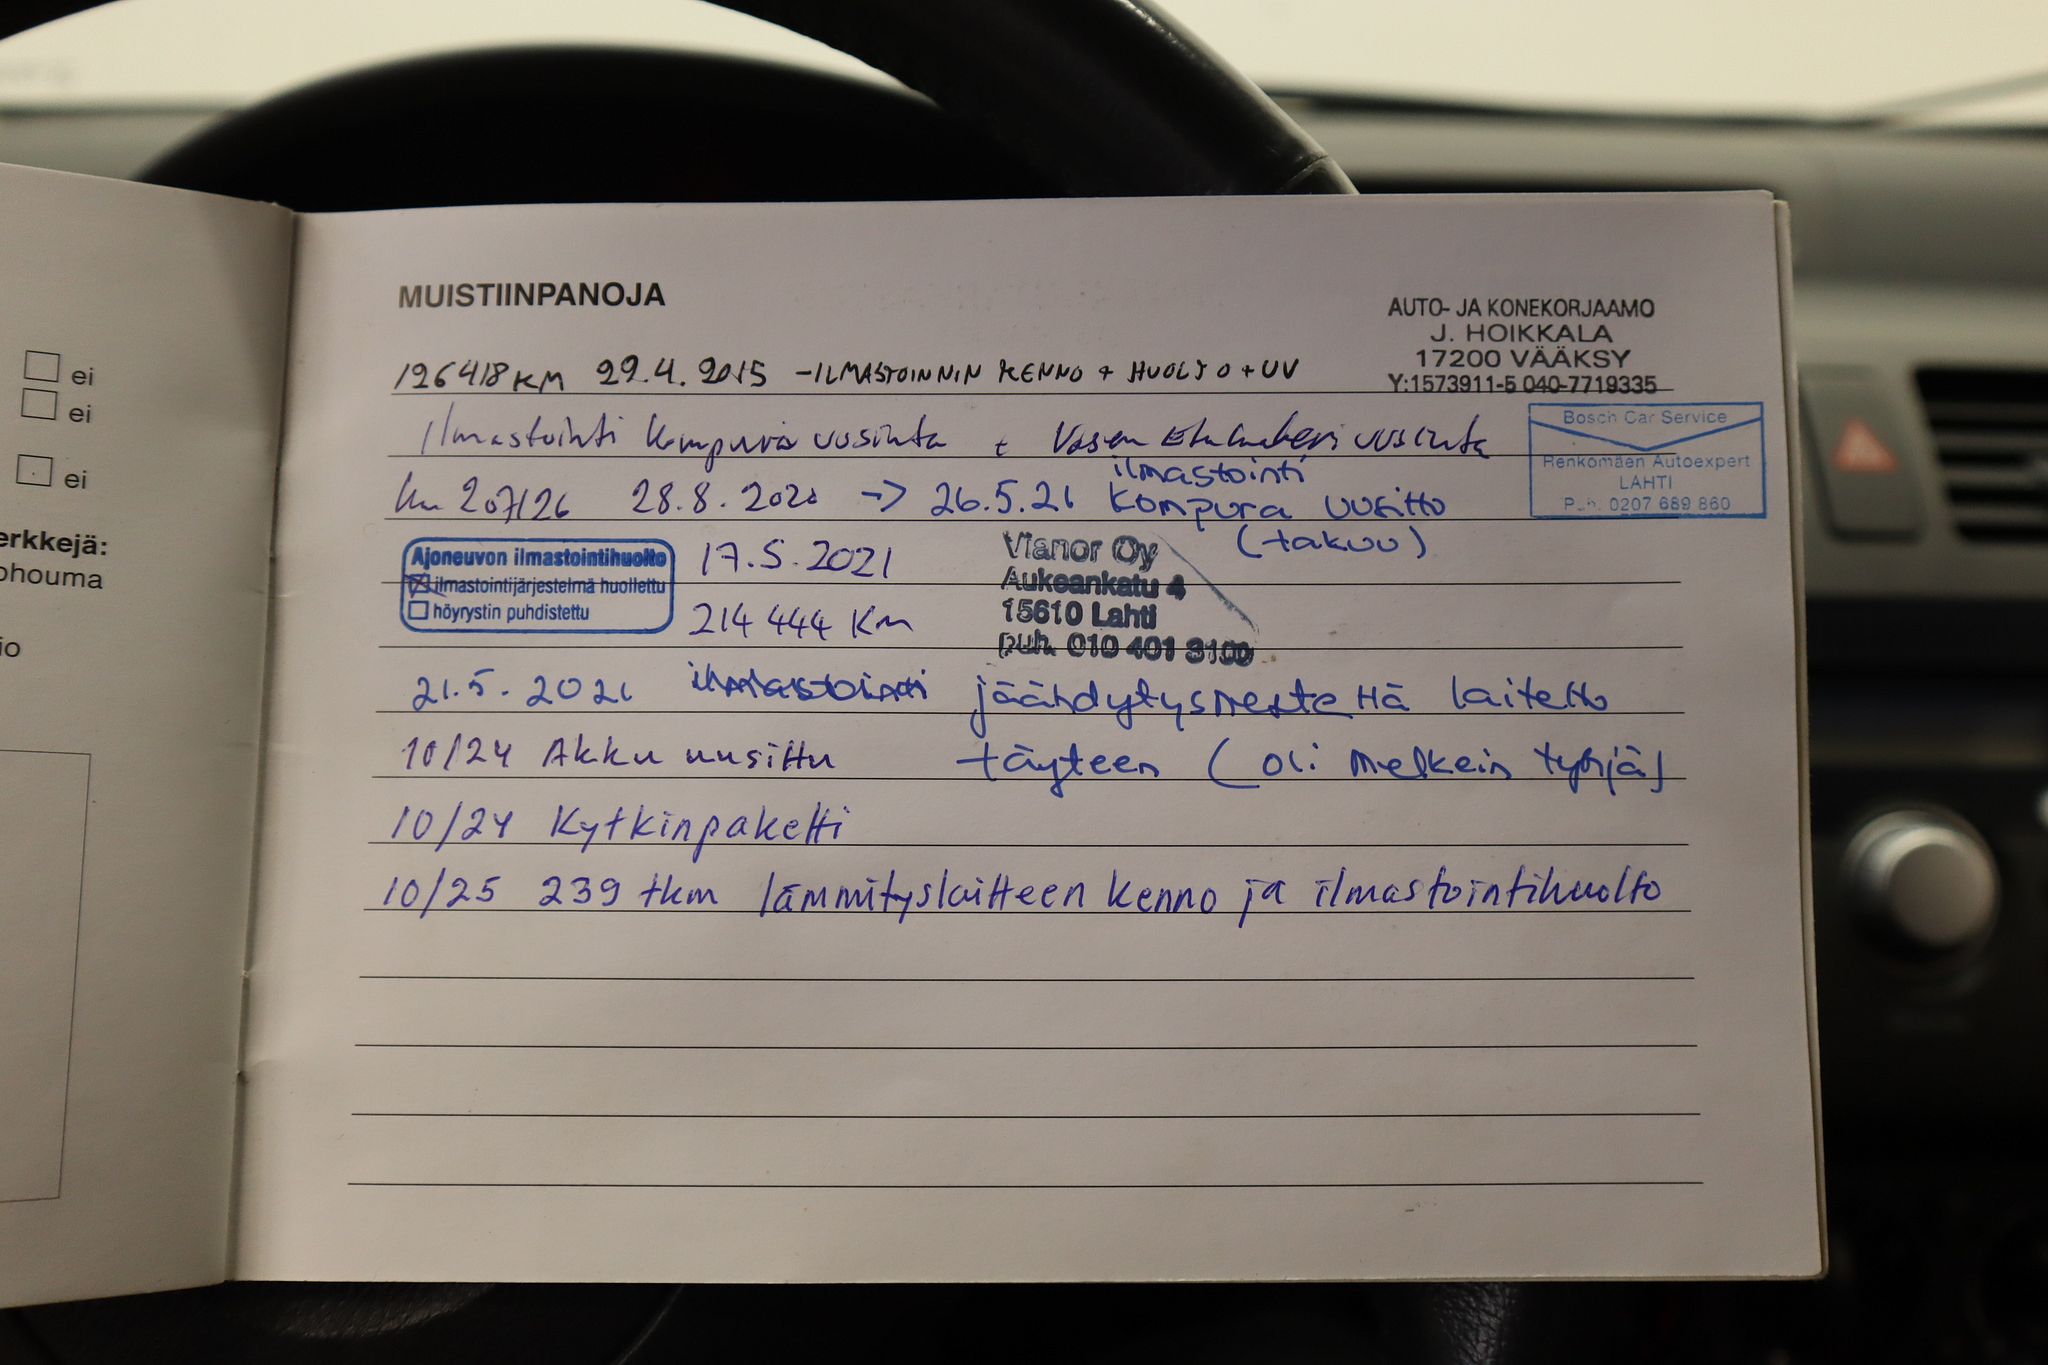 ei
ei
ei
erkkejä:
ohouma
io
MUISTIINPANOJA
AUTO- JA KONEKORJAAMO
J. HOIKKALA
17200 VÄÄKSY
Y:1573911-5 040-7719335
126418 KM 29.4.2015 -ILMASTOINNIN KENNO + HUOLTO + UV
Ilmastointi kompura uusinta + Vasen uusinta
Bosch Car Service
Renkomäen Autoexpert
LAHTI
Puh. 0207 689 860
km 207126 28.8.2020 -> 26.5.21 ilmastointi
kompura uusittu
(takuu)
Ajoneuvon ilmastointihuolto
ilmastointijärjestelmä huollettu
höyrystin puhdistettu
17.5.2021
214 444 KM
Vianor Oy
Aukeankatu 4
15610 Lahti
puh. 010 401 3100
21.5.2021 ilmastointi jäähdytysnestettä laitettu
täyteen (oli melkein tyhjä)
10/24 Akku uusittu
10/24 Kytkinpaketti
10/25 239 tkm lämmityslaitteen kenno ja ilmastointihuolto